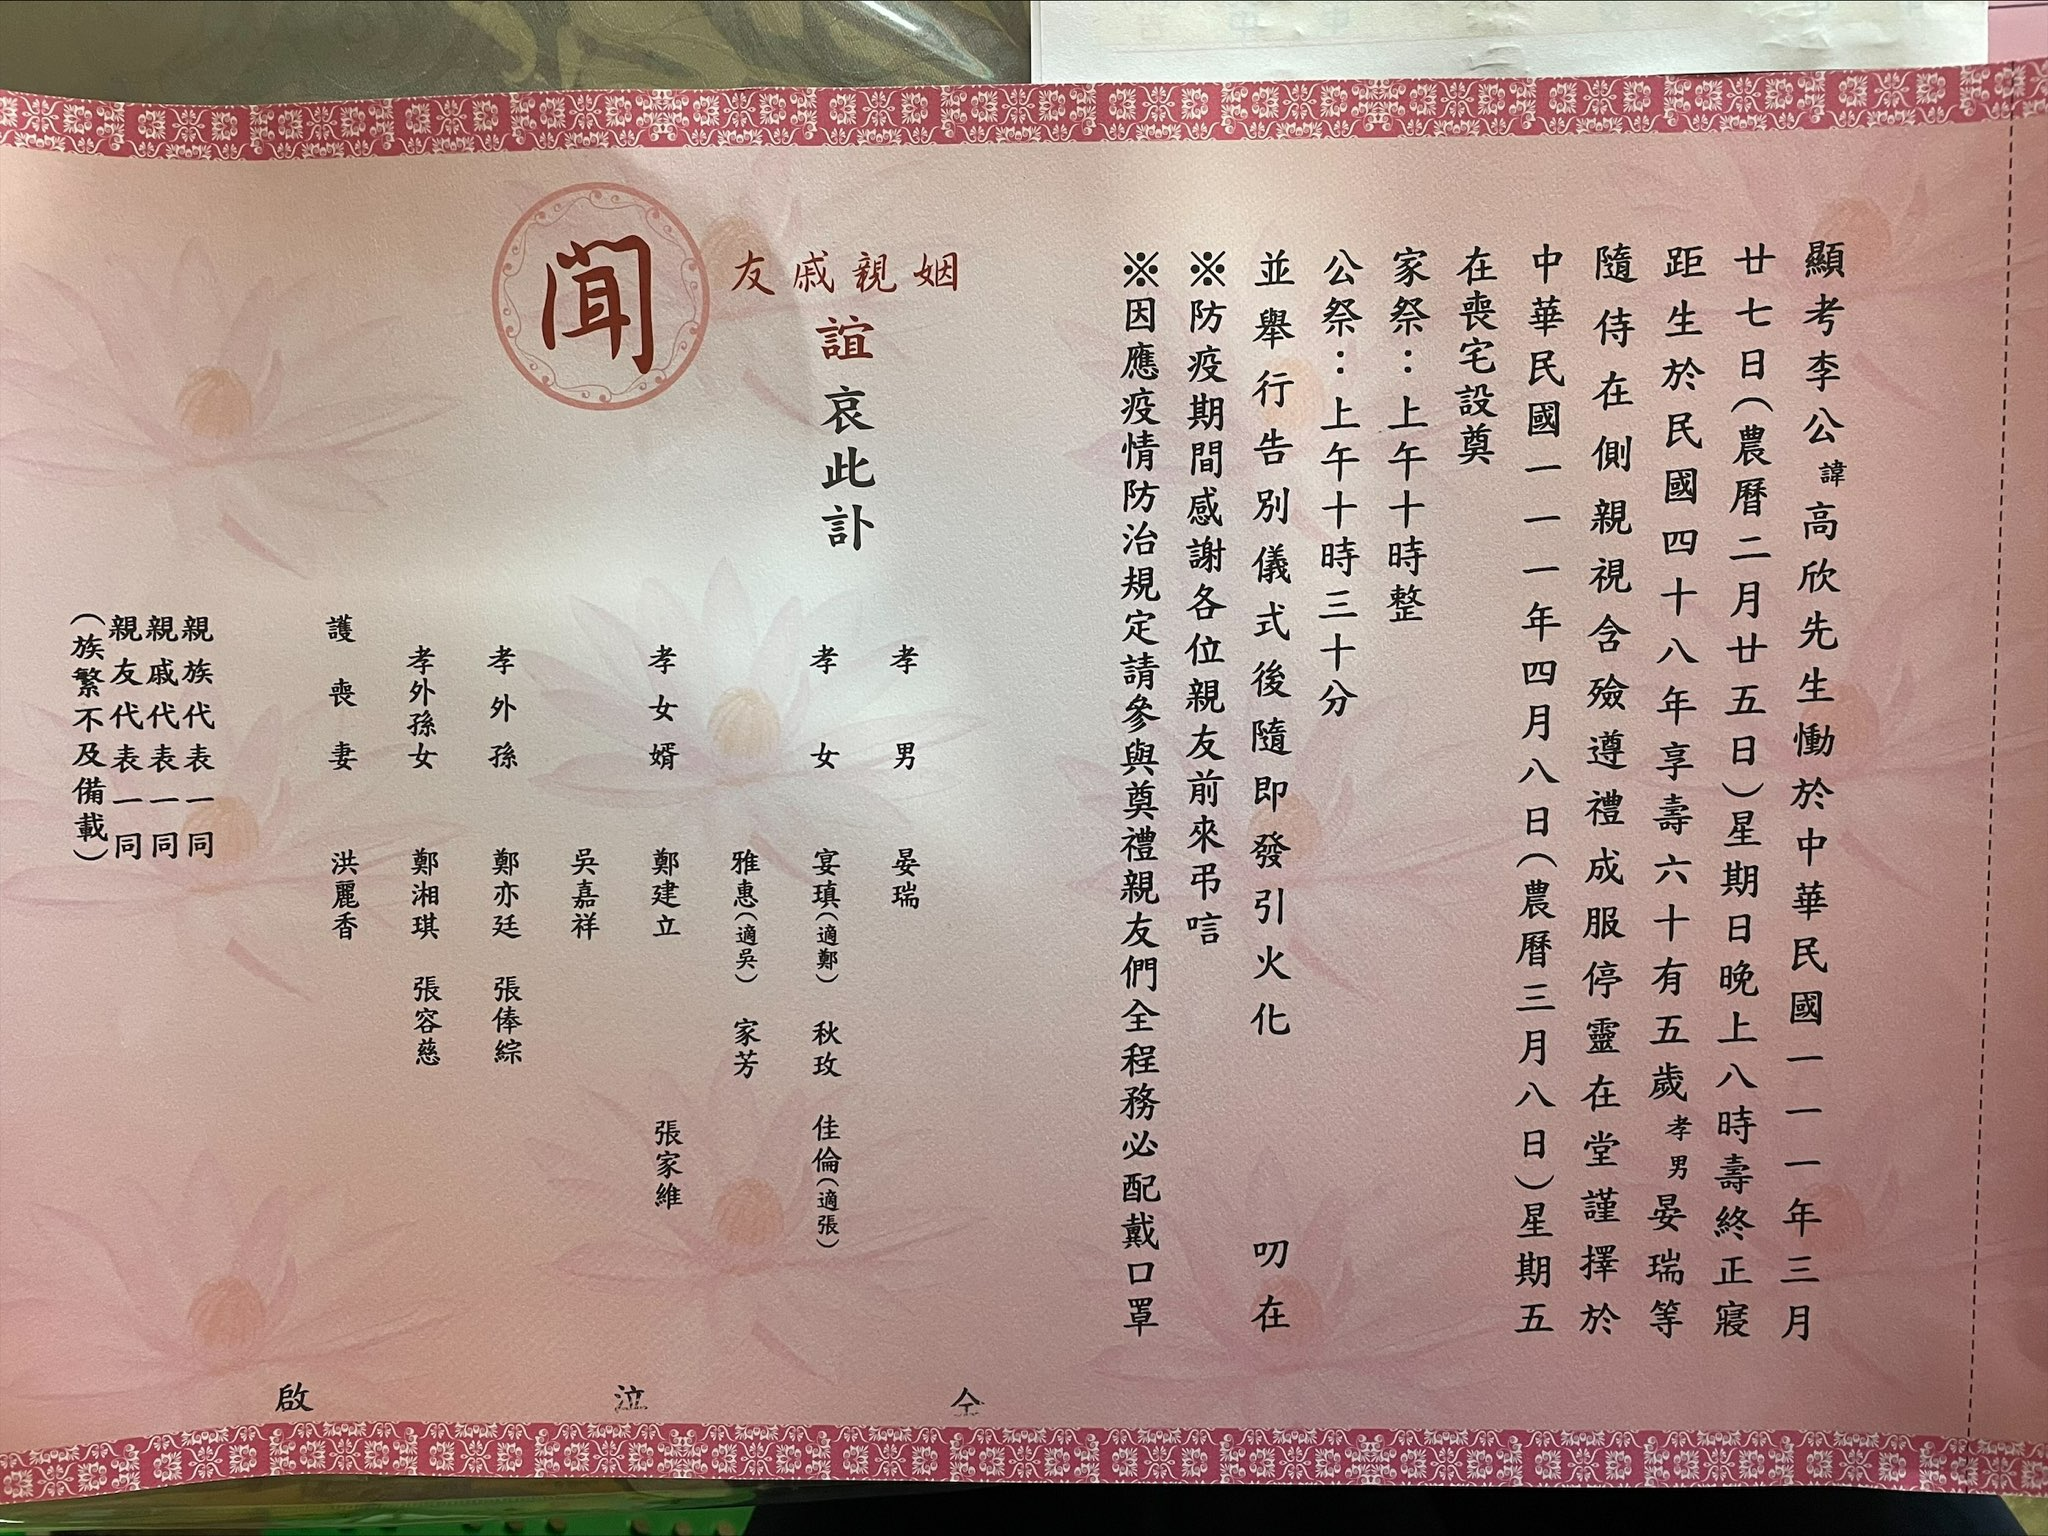 顯考李公諱高欣先生慟於中華民國一一一年三月
廿七日(農曆二月廿五日)星期日晚上八時壽終正寢
距生於民國四十八年享壽六十有五歲孝男晏瑞等
隨侍在側親視含殮遵禮成服停靈在堂謹擇於
中華民國一一一年四月八日(農曆三月八日)星期五
在喪宅設奠
家祭：上午十時整
公祭：上午十時三十分
並舉行告別儀式後隨即發引火化 叨在
※防疫期間感謝各位親友前來弔唁
※因應疫情防治規定請參與奠禮親友們全程務必配戴口罩
姻親戚友
誼哀此訃
聞
孝男 晏瑞
孝女 宴瑱(適鄭) 秋玫 佳倫(適張)
雅惠(適吳) 家芳
孝女婿 鄭建立 張家維
吳嘉祥
孝外孫 鄭亦廷 張俸綜
孝外孫女 鄭湘琪 張容慈
護喪妻 洪麗香
親族代表一同
親戚代表一同
親友代表一同
(族繁不及備載)
仝 泣 啟